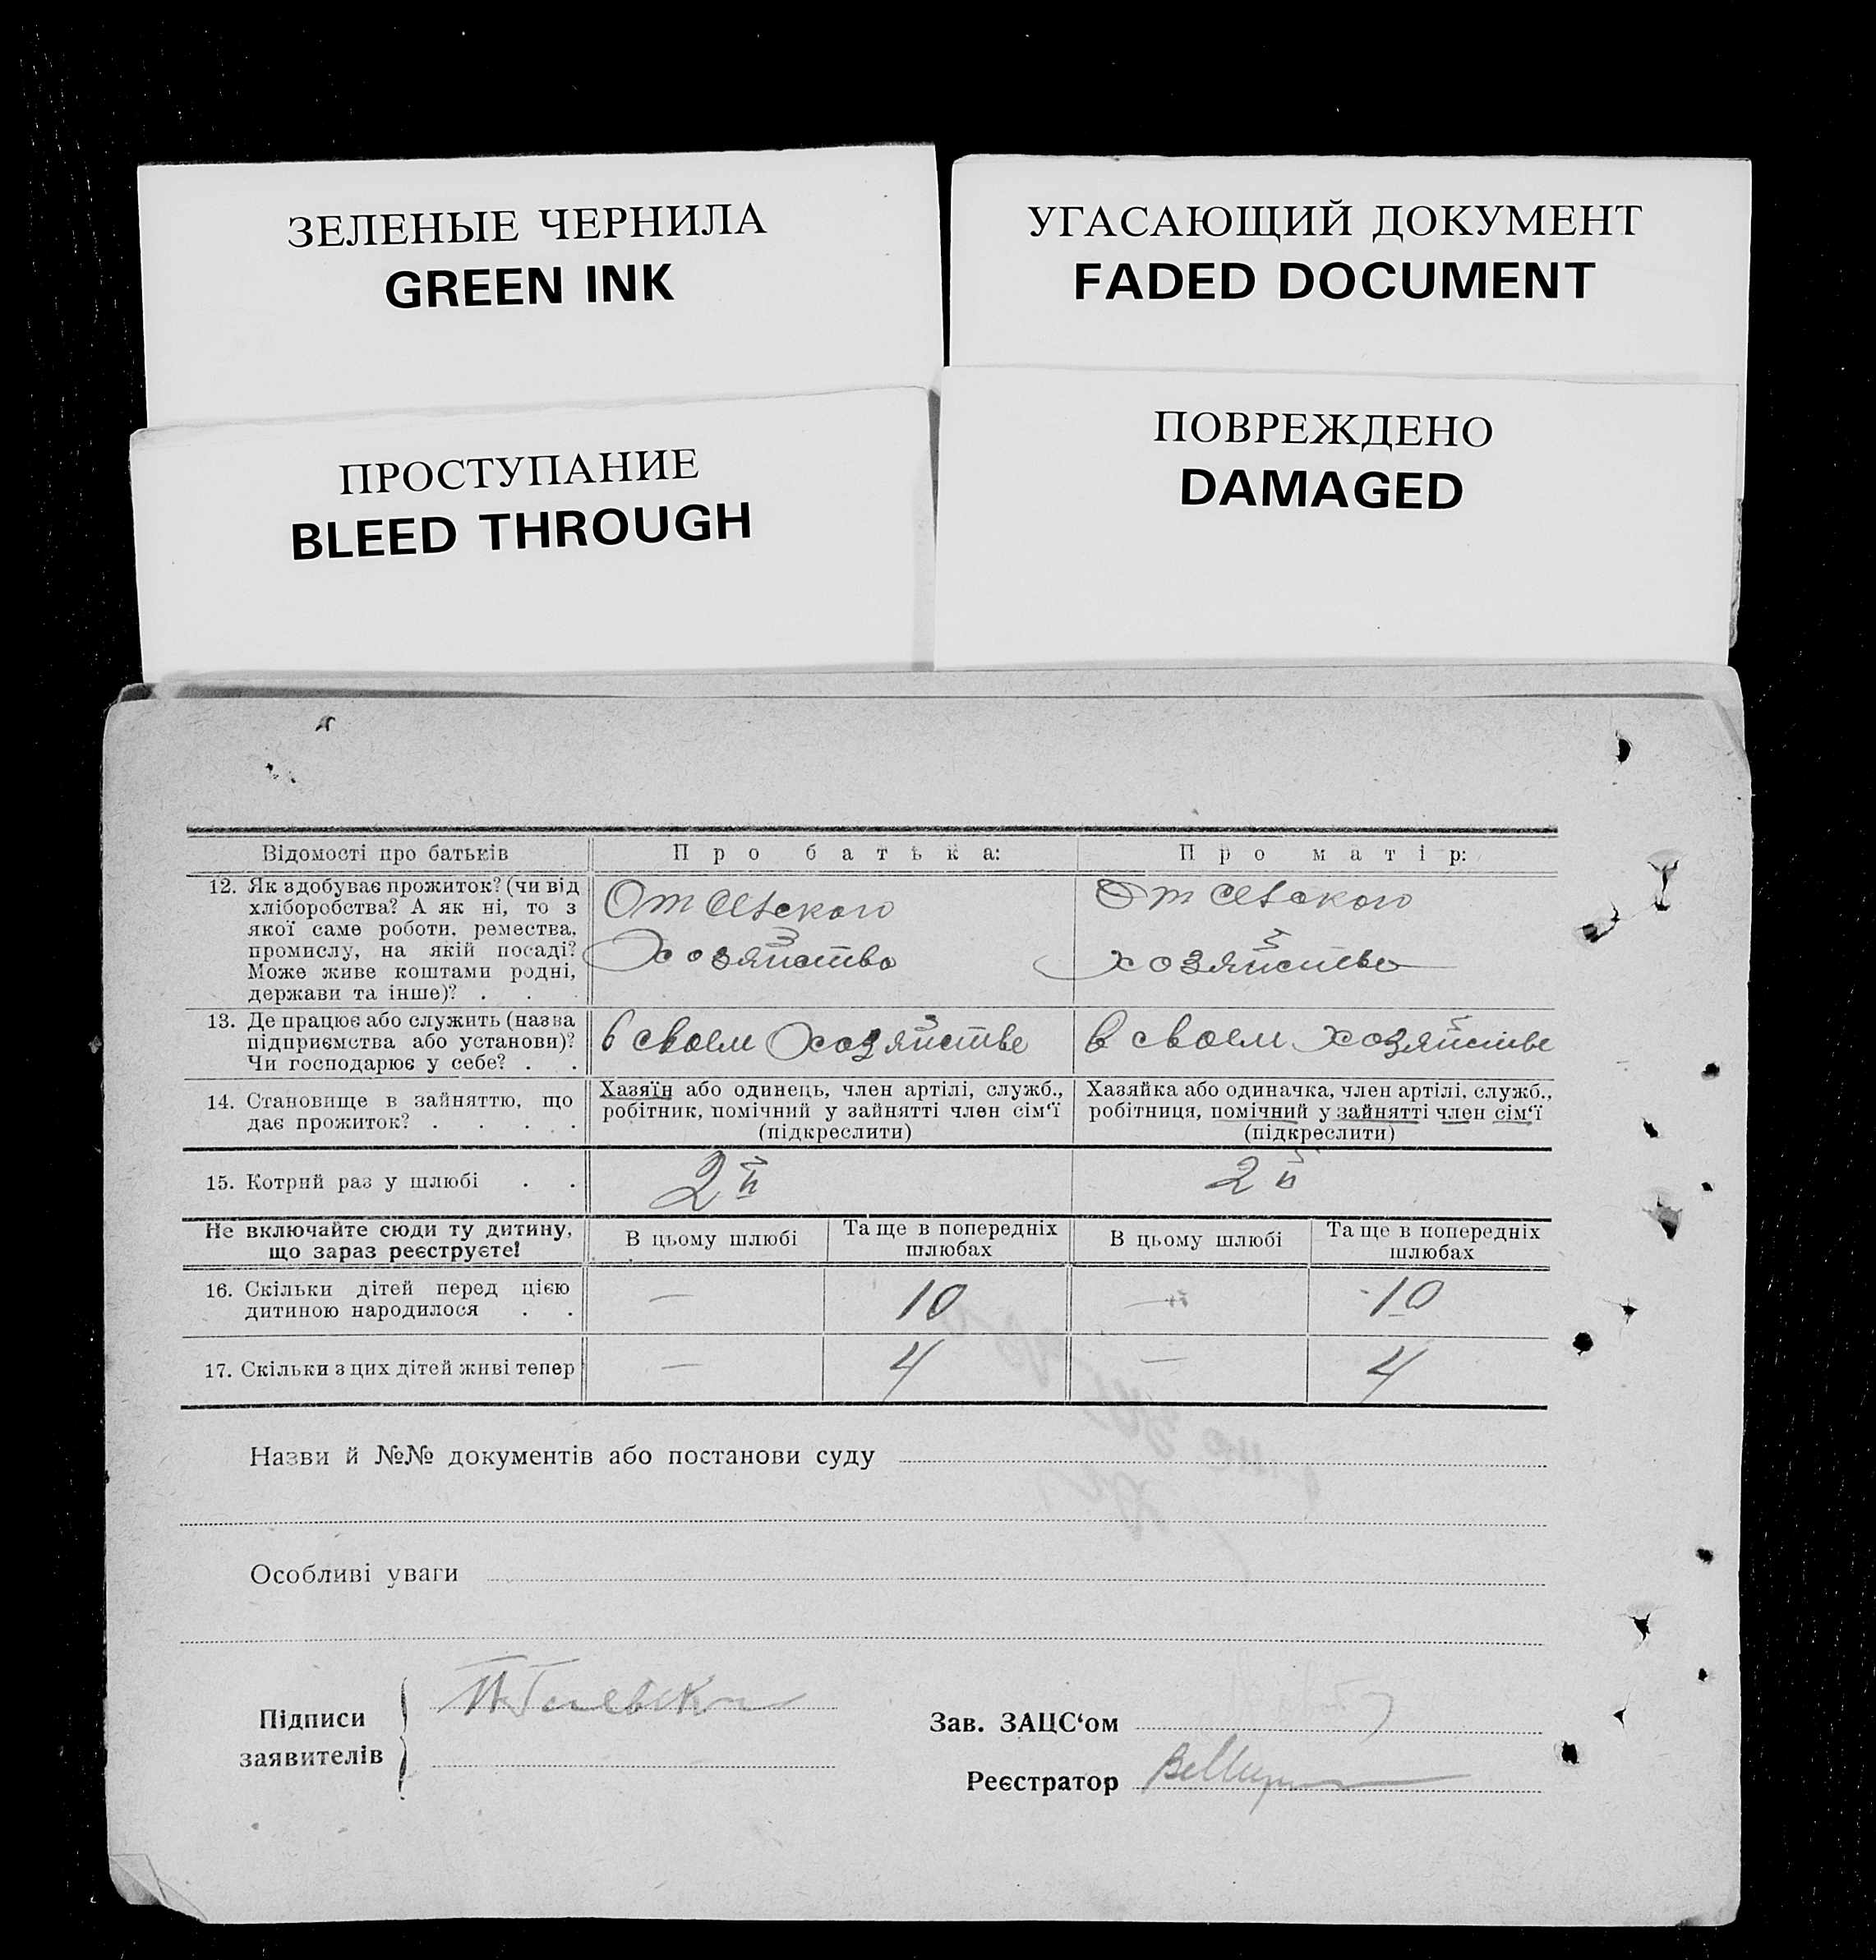 ЗЕЛЕНЫЕ ЧЕРНИЛА
GREEN INK
УГАСАЮЩИЙ ДОКУМЕНТ
FADED DOCUMENT
ПРОСТУПАНИЕ
BLEED THROUGH
ПОВРЕЖДЕНО
DAMAGED
Відомості про батьків
Про батька:
Про матір:
12. Як здобуває прожиток? (чи від
хліборобства? А як ні, то з
якої саме роботи, ремества,
промислу, на якій посаді?
Може живе коштами родні,
держави та інше)? . .
От сельского
хозяйства
От сельского
хозяйства
13. Де працює або служить (назва
підприємства або установи)?
Чи господарює у себе? . .
в своем хозяйстве
в своем хозяйстве
14. Становище в зайняттю, що
дає прожиток? . . . .
Хазяїн або одинець, член артілі, служб.,
робітник, помічний у зайнятті член сім'ї
(підкреслити)
Хазяйка або одиначка, член артілі, служб.,
робітниця, помічний у зайнятті член сім'ї
(підкреслити)
15. Котрий раз у шлюбі . .
2й
2й
Не включайте сюди ту дитину,
що зараз реєструєте!
В цьому шлюбі
Та ще в попередніх
шлюбах
В цьому шлюбі
Та ще в попередніх
шлюбах
16. Скільки дітей перед цією
дитиною народилося . .
—
10
—
10
17. Скільки з цих дітей живі тепер
—
4
—
4
Назви й №№ документів або постанови суду
Особливі уваги
Підписи
заявителів
Зав. ЗАЦС'ом
Реєстратор